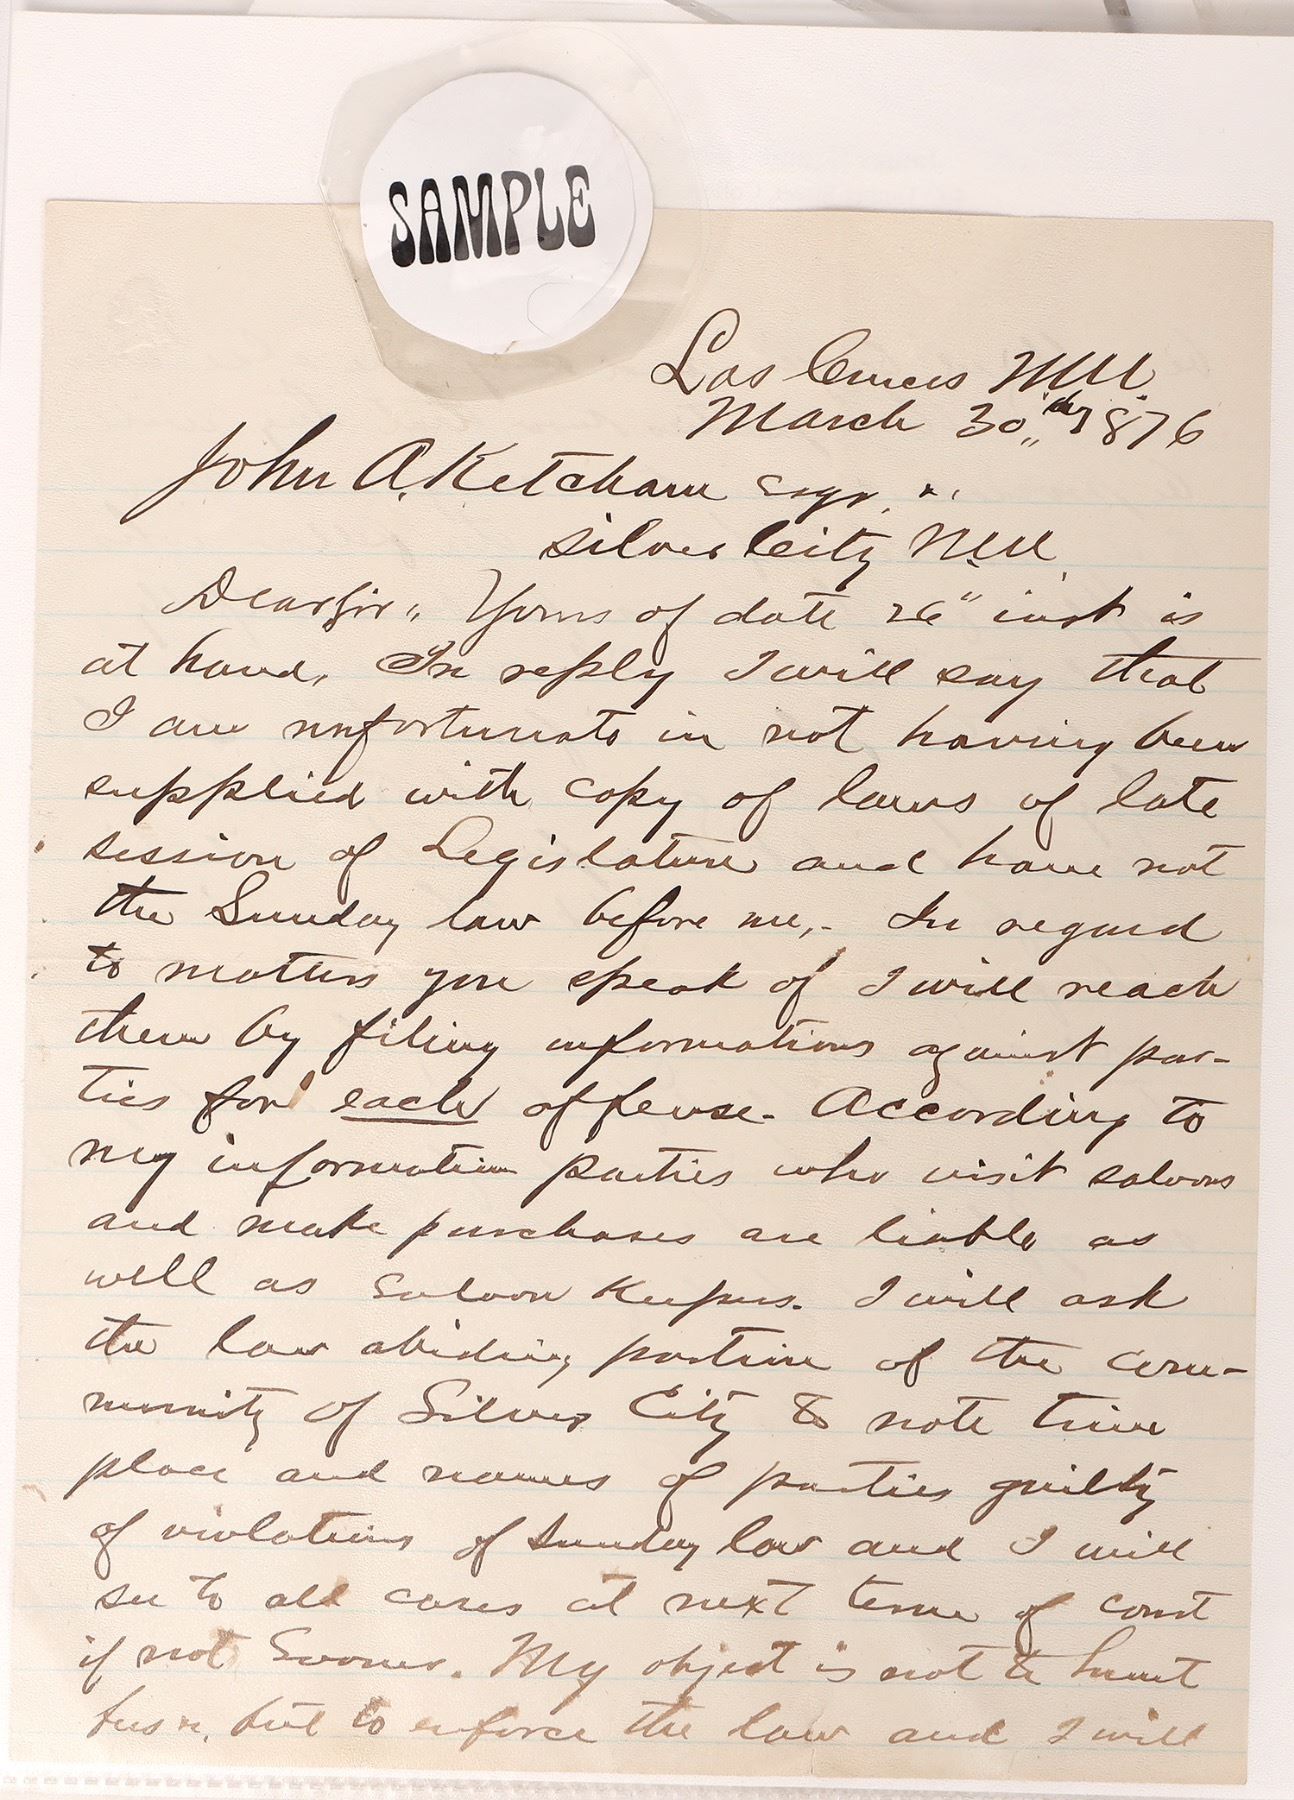 SAMPLE
Las Cruces N.M.
March 30th 1876
John A. Ketcham Esqr.
Silver City N.M.
Dear Sir, Yours of date 26" inst is
at hand. In reply I will say that
I am unfortunate in not having been
supplied with copy of laws of late
session of Legislature and have not
the Sunday law before me,. In regard
to matters you speak of I will reach
them by filing informations against par-
ties for each offense. According to
my information parties who visit saloons
and make purchases are liable as
well as saloon keepers. I will ask
the law abiding portion of the com-
munity of Silver City to note time
place and names of parties guilty
of violations of Sunday law and I will
see to all cases at next term of court
if not sooner. My object is not to hunt
but to enforce the law and I will